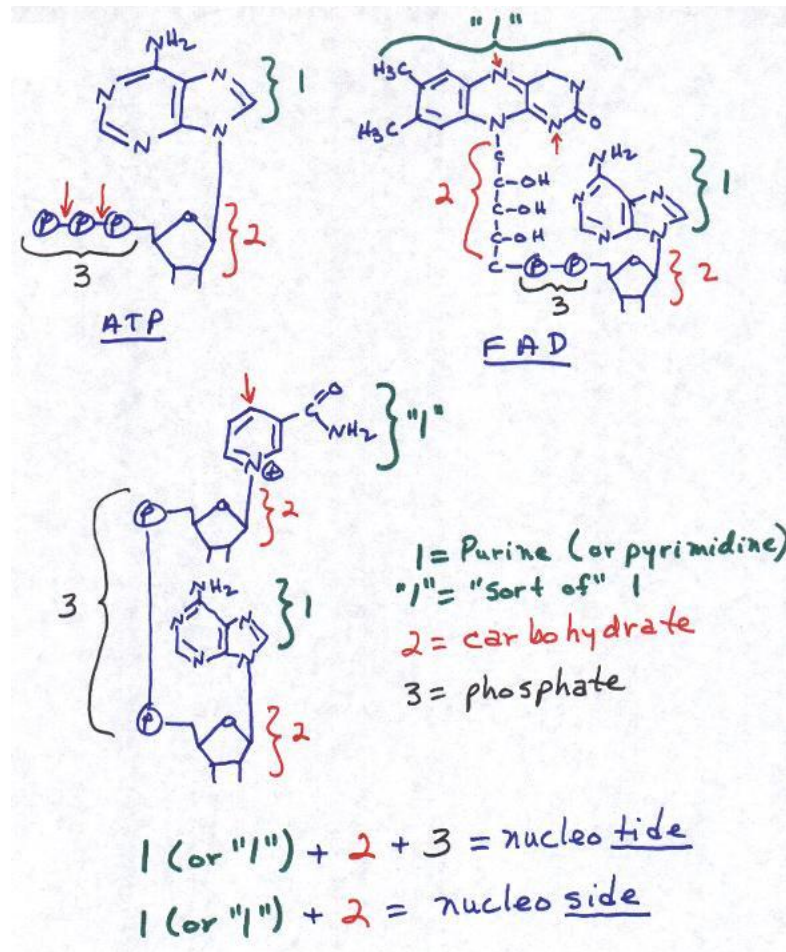 NH2
N
N
N
N
1
P P P
O
2
3
ATP
"1"
H3C
H3C
N
N
N
N
O
2
C
C-OH
C-OH
C-OH
C P P
3
NH2
N
N
N
N
1
O
2
FAD
C O
NH2
"1"
N +
P
O
2
3
NH2
N
N
N
N
1
P
O
2
1 = Purine (or pyrimidine)
"1" = "Sort of" 1
2 = carbohydrate
3 = phosphate
1 (or "1") + 2 + 3 = nucleotide
1 (or "1") + 2 = nucleoside